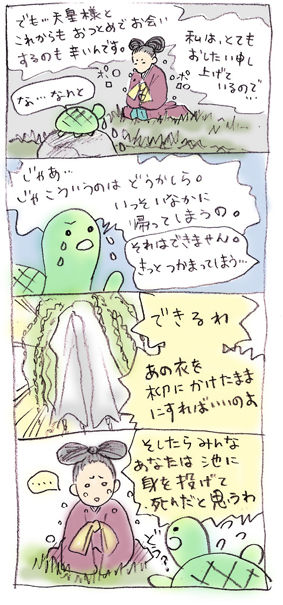 私は、とても
おしたい申し
上げて
いるので
…
でも…天皇様と
これからも おつとめでお会い
するのも 辛いんです。
ポロ
ポロ
な…なんと
じゃあ…
じゃこういうのは どうかしら。
いっそ いなかに
帰ってしまうの。
それはできません。
きっと つかまってしまう…
できるわ
あの衣を
木卯にかけたまま
にすればいいのよ
そしたら みんな
あなたは 池に
身を投げて
死んだと思うわ
…
どう?